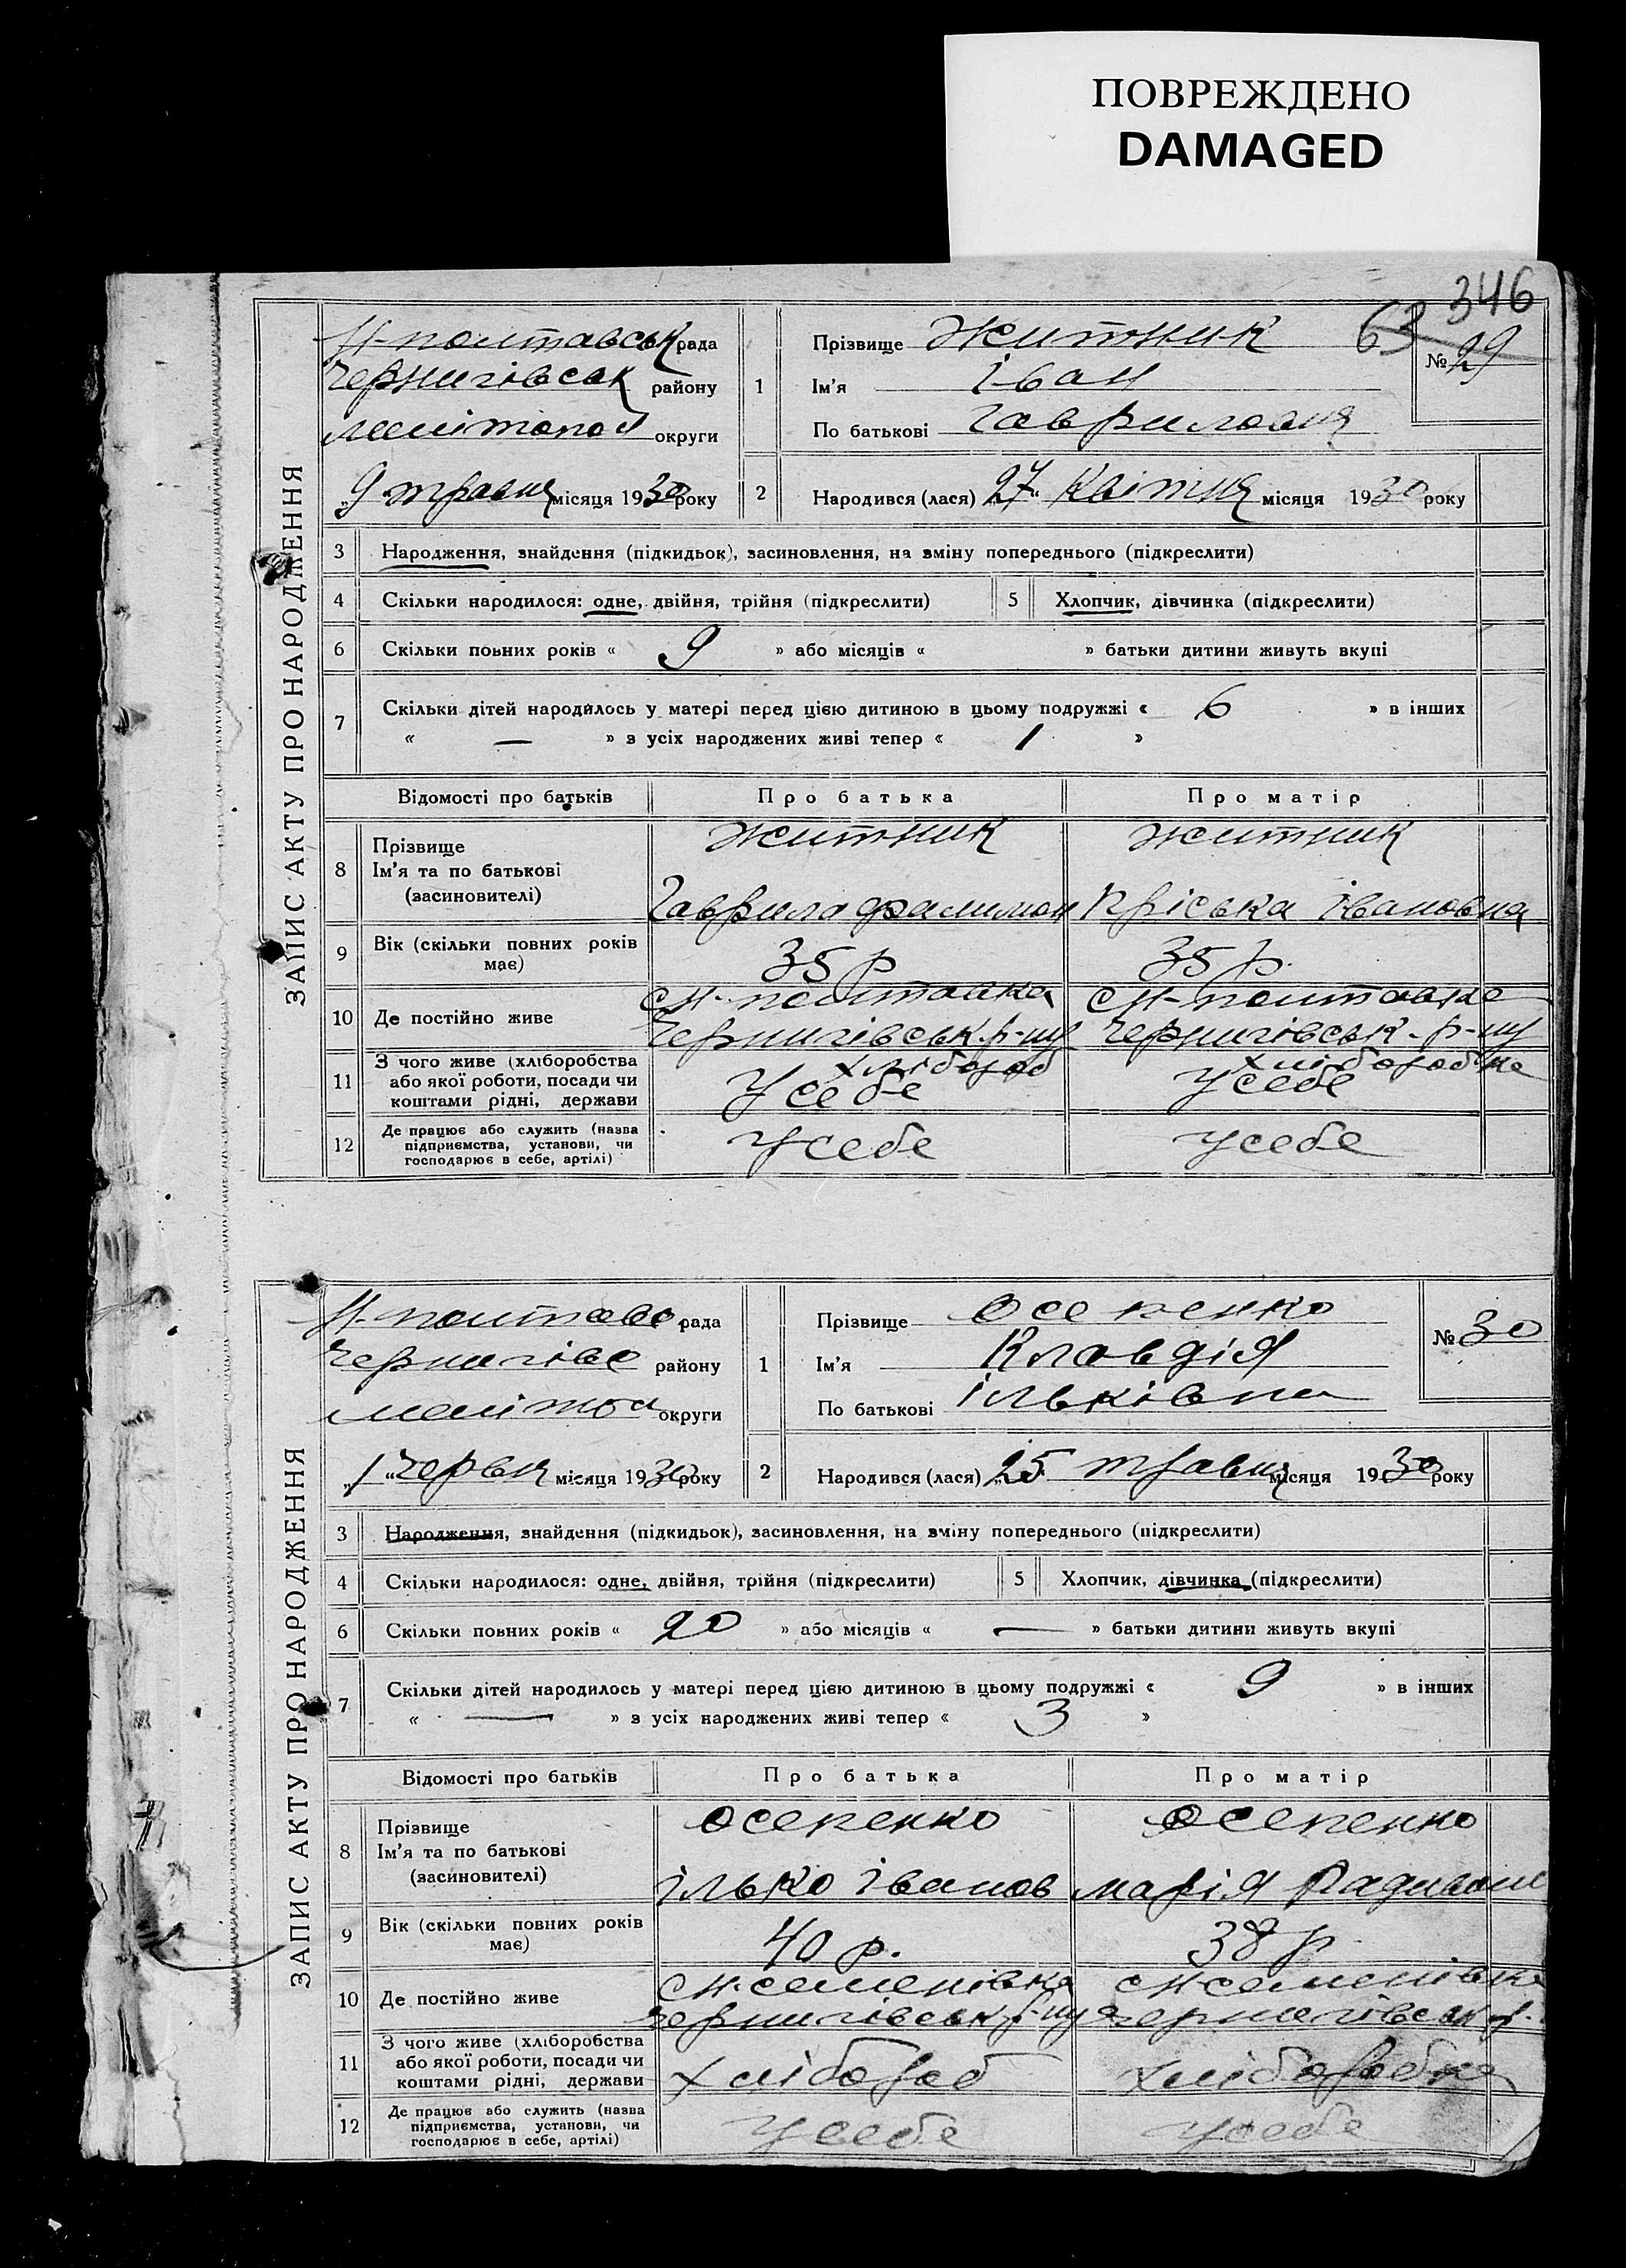 ПОВРЕЖДЕНО
DAMAGED
346
63
ЗАПИС АКТУ ПРО НАРОДЖЕННЯ
Н-полтавськ рада
Чернигівськ району
мелітопол округи
„9 травня місяця 1930 року
1
Прізвище Житник
Ім'я Іван
По батькові Гаврилович
№ 29
2 Народився (лася) „27“ Квітня місяця 1930 року
3 Народження, знайдення (підкидьок), засиновлення, на зміну попереднього (підкреслити)
4 Скільки народилося: одне, двійня, трійня (підкреслити) 5 Хлопчик, дівчинка (підкреслити)
6 Скільки повних років « 9 » або місяців « » батьки дитини живуть вкупі
7 Скільки дітей народилось у матері перед цією дитиною в цьому подружжі « 6 » в інших
« — » з усіх народжених живі тепер « 1 »
Відомості про батьків Про батька Про матір
8 Прізвище
Ім'я та по батькові
(засиновителі)
Житник
Гаврило Филимон
Житник
Пріська Івановна
9 Вік (скільки повних років
має)
35 р
35 р.
10 Де постійно живе
с Н-полтавка
Чернигівськ. р-ну
с Н-полтавка
Чернигівськ. р-ну
11 З чого живе (хліборобства
або якої роботи, посади чи
коштами рідні, держави
хлібороб
У себе
хліборобка
У себе
12 Де працює або служить (назва
підприємства, установи, чи
господарює в себе, артілі)
У себе
У себе
ЗАПИС АКТУ ПРО НАРОДЖЕННЯ
Н-полтавс рада
Чернигівс району
меліто округи
„1“ червн місяця 1930 року
1
Прізвище Осепенко
Ім'я Клавдія
По батькові Ільківна
№ 30
2 Народився (лася) „25“ травня місяця 1930 року
3 Народження, знайдення (підкидьок), засиновлення, на зміну попереднього (підкреслити)
4 Скільки народилося: одне, двійня, трійня (підкреслити) 5 Хлопчик, дівчинка (підкреслити)
6 Скільки повних років « 20 » або місяців « — » батьки дитини живуть вкупі
7 Скільки дітей народилось у матері перед цією дитиною в цьому подружжі « 9 » в інших
« — » з усіх народжених живі тепер « 3 »
Відомості про батьків Про батька Про матір
8 Прізвище
Ім'я та по батькові
(засиновителі)
Осепенко
Ілько Іванов
Осепенко
Марія
9 Вік (скільки повних років
має)
40 р.
38 р
10 Де постійно живе
с Н-семенівка
Чернигівськ р-ну
с Н семенівка
Чернигівськ р-
11 З чого живе (хліборобства
або якої роботи, посади чи
коштами рідні, держави
хлібороб
хліборобка
12 Де працює або служить (назва
підприємства, установи, чи
господарює в себе, артілі)
У себе
У себе